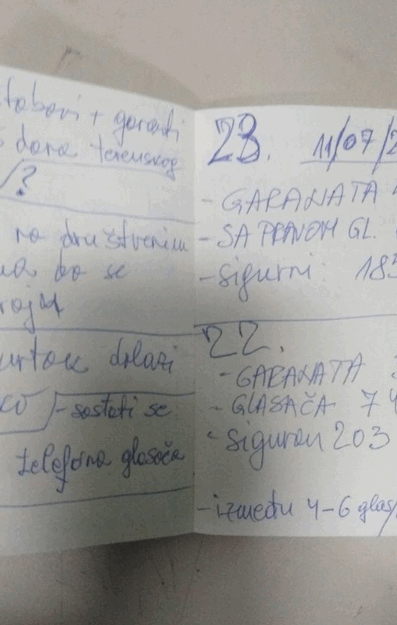 tabori + garanti
dana terenskog
/?
na društvenim
da se
dolazi
sastati se
telefona glasača
23. 11/07/2
- GARANATA
- SA PRAVOM GL.
- Sigurni 183
22.
- GARANATA
- GLASAČA 74
- Siguran 203
- između 4-6 glas